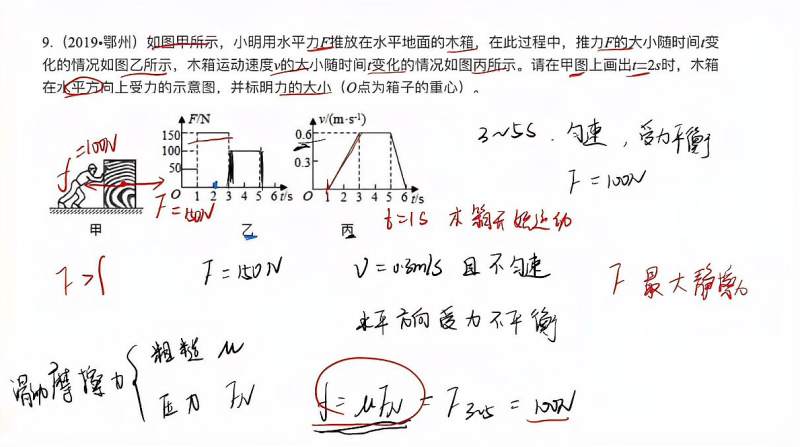 9.（2019•鄂州）如图甲所示，小明用水平力F推放在水平地面的木箱，在此过程中，推力F的大小随时间t变
化的情况如图乙所示，木箱运动速度v的大小随时间t变化的情况如图丙所示。请在甲图上画出t=2s时，木箱
在水平方向上受力的示意图，并标明力的大小（O点为箱子的重心）。
F/N
150
100
50
O 1 2 3 4 5 6 t/s
v/(m·s⁻¹)
0.6
0.3
O 1 2 3 4 5 6 t/s
3~5s．匀速，受力平衡
F=100N
f=100N
F=150N
甲
乙
丙
t=1s 木箱开始运动
F>f
F=150N
V=0.3m/s 且不匀速
F 最大静摩力
水平方向受力不平衡
滑动摩擦力
粗糙 μ
压力 FN
f=μFN=F3~5=100N